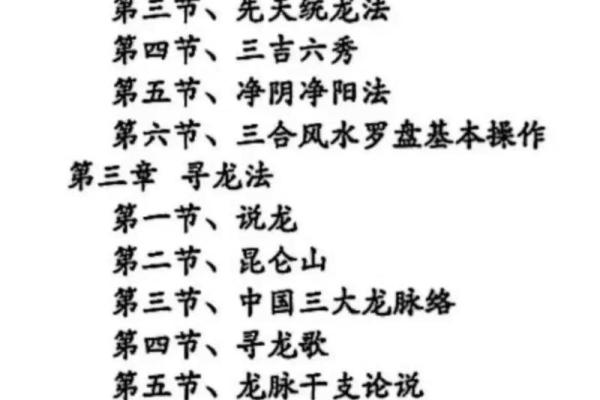 第三节、先天统龙法
第四节、三吉六秀
第五节、净阴净阳法
第六节、三合风水罗盘基本操作
第三章 寻龙法
第一节、说龙
第二节、昆仑山
第三节、中国三大龙脉络
第四节、寻龙歌
第五节、龙脉干支论说